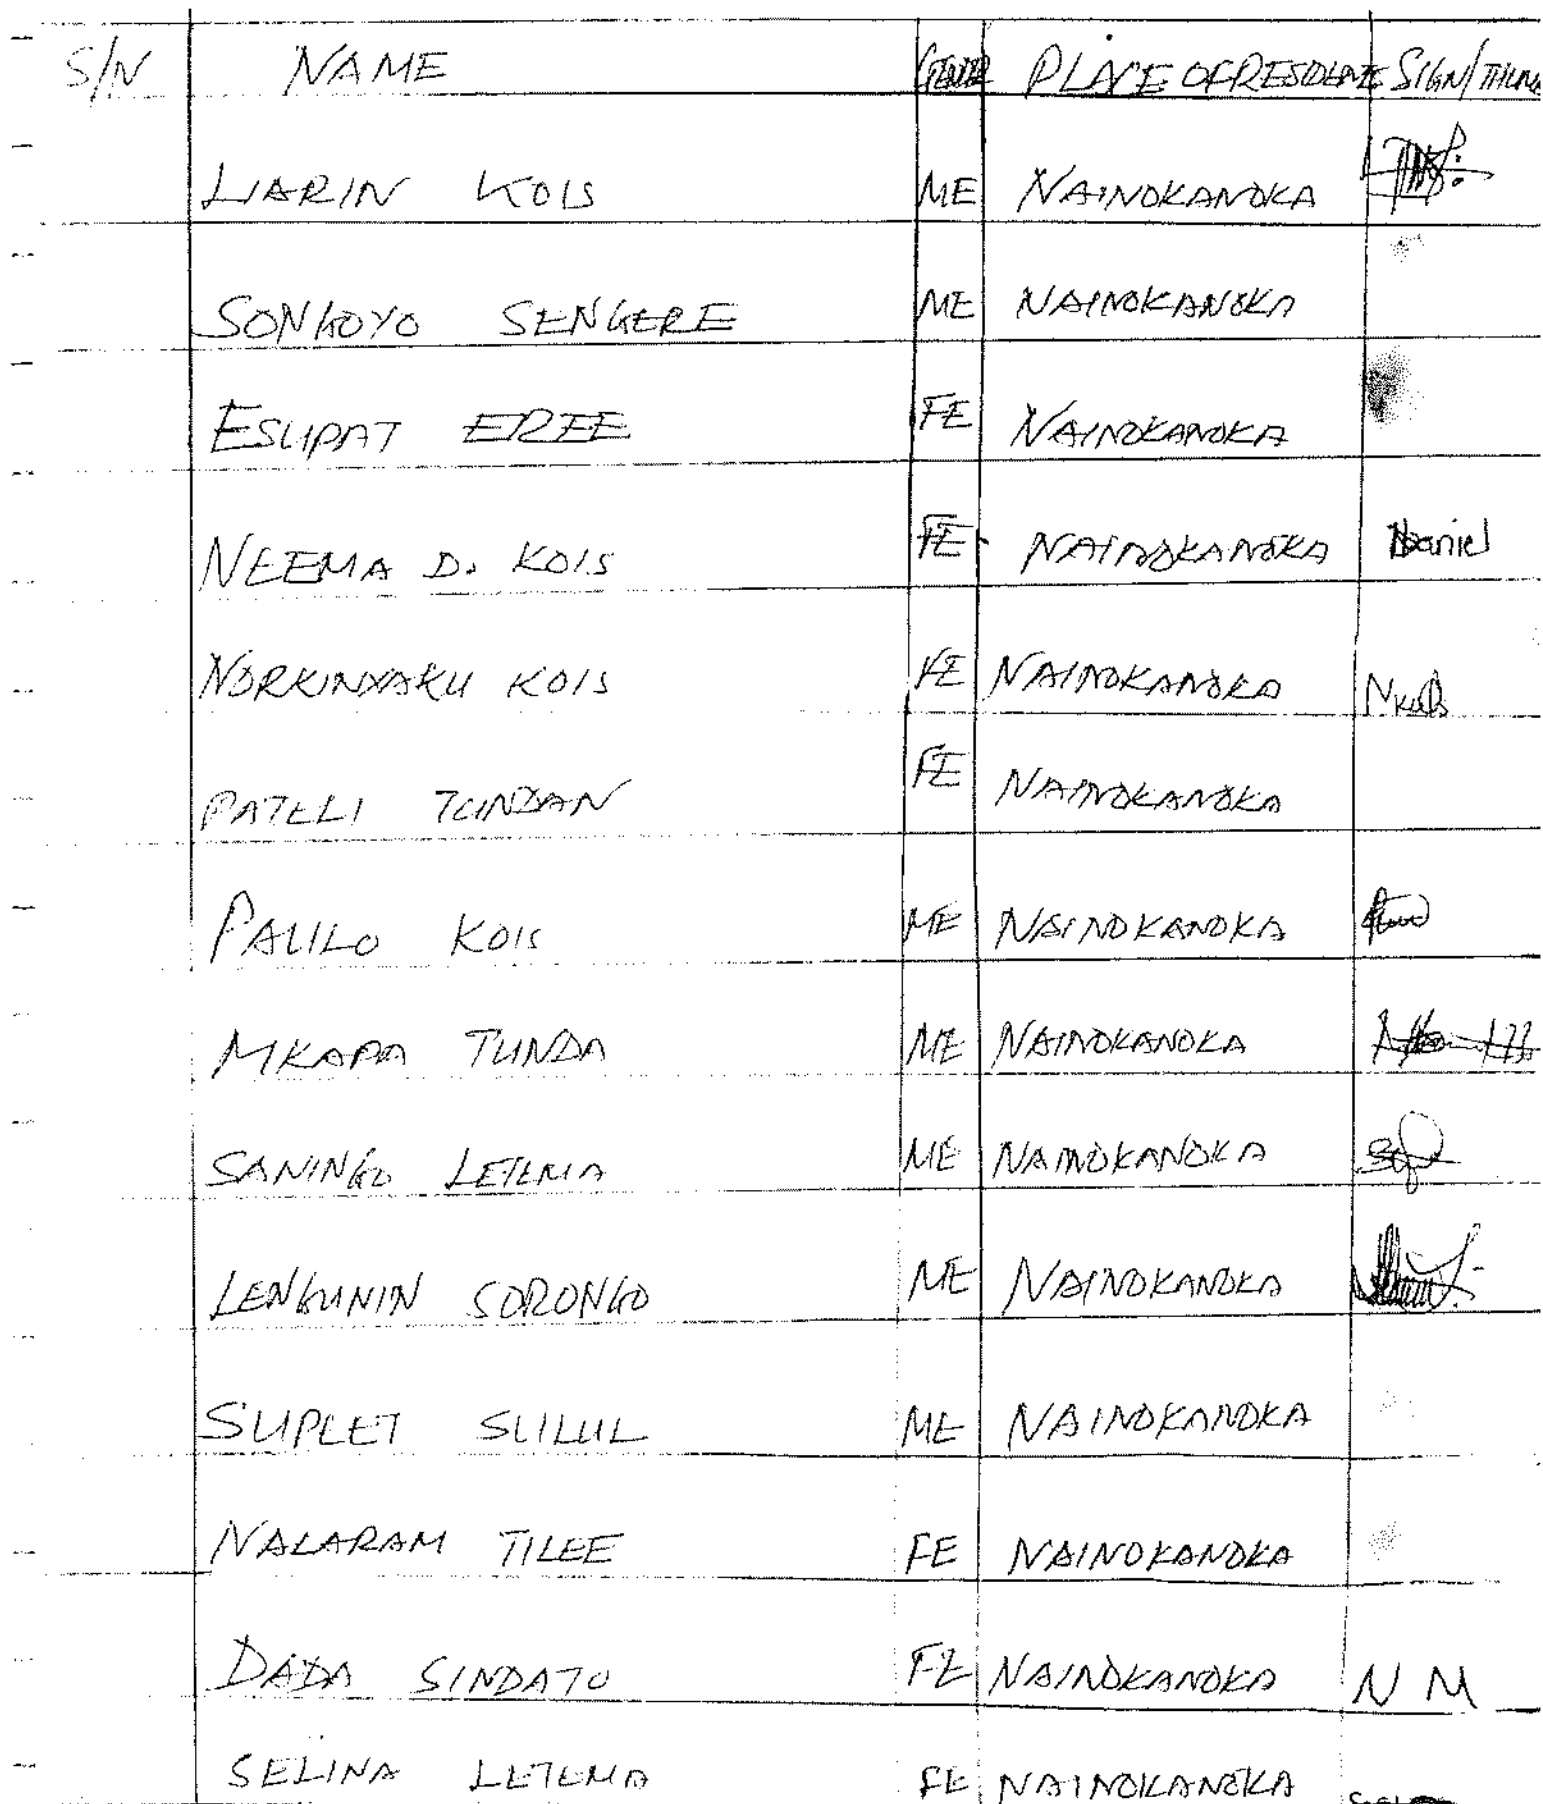 S/N NAME GENDER PLACE OF RESIDENCE SIGN/THUMB
LIARIN KOIS ME NAINOKANOKA
SONGOYO SENGERE ME NAINOKANOKA
ESUPAT EREE FE NAINOKANOKA
NEEMA D. KOIS FE NAINOKANOKA Ndaniel
NORKINYAKU KOIS FE NAINOKANOKA Nkois
PATELI TUNDAN FE NAINOKANOKA
PAULO KOIS ME NAINOKANOKA
MKAPA TUNDA ME NAINOKANOKA
SANINGO LETEMA ME NAINOKANOKA
LENGUNIN SORONGO ME NAINOKANOKA
SUPLET SULUL ME NAINOKANOKA
NALARAM TILEE FE NAINOKANOKA
DADA SINDATO FE NAINOKANOKA N M
SELINA LETEMA FE NAINOKANOKA